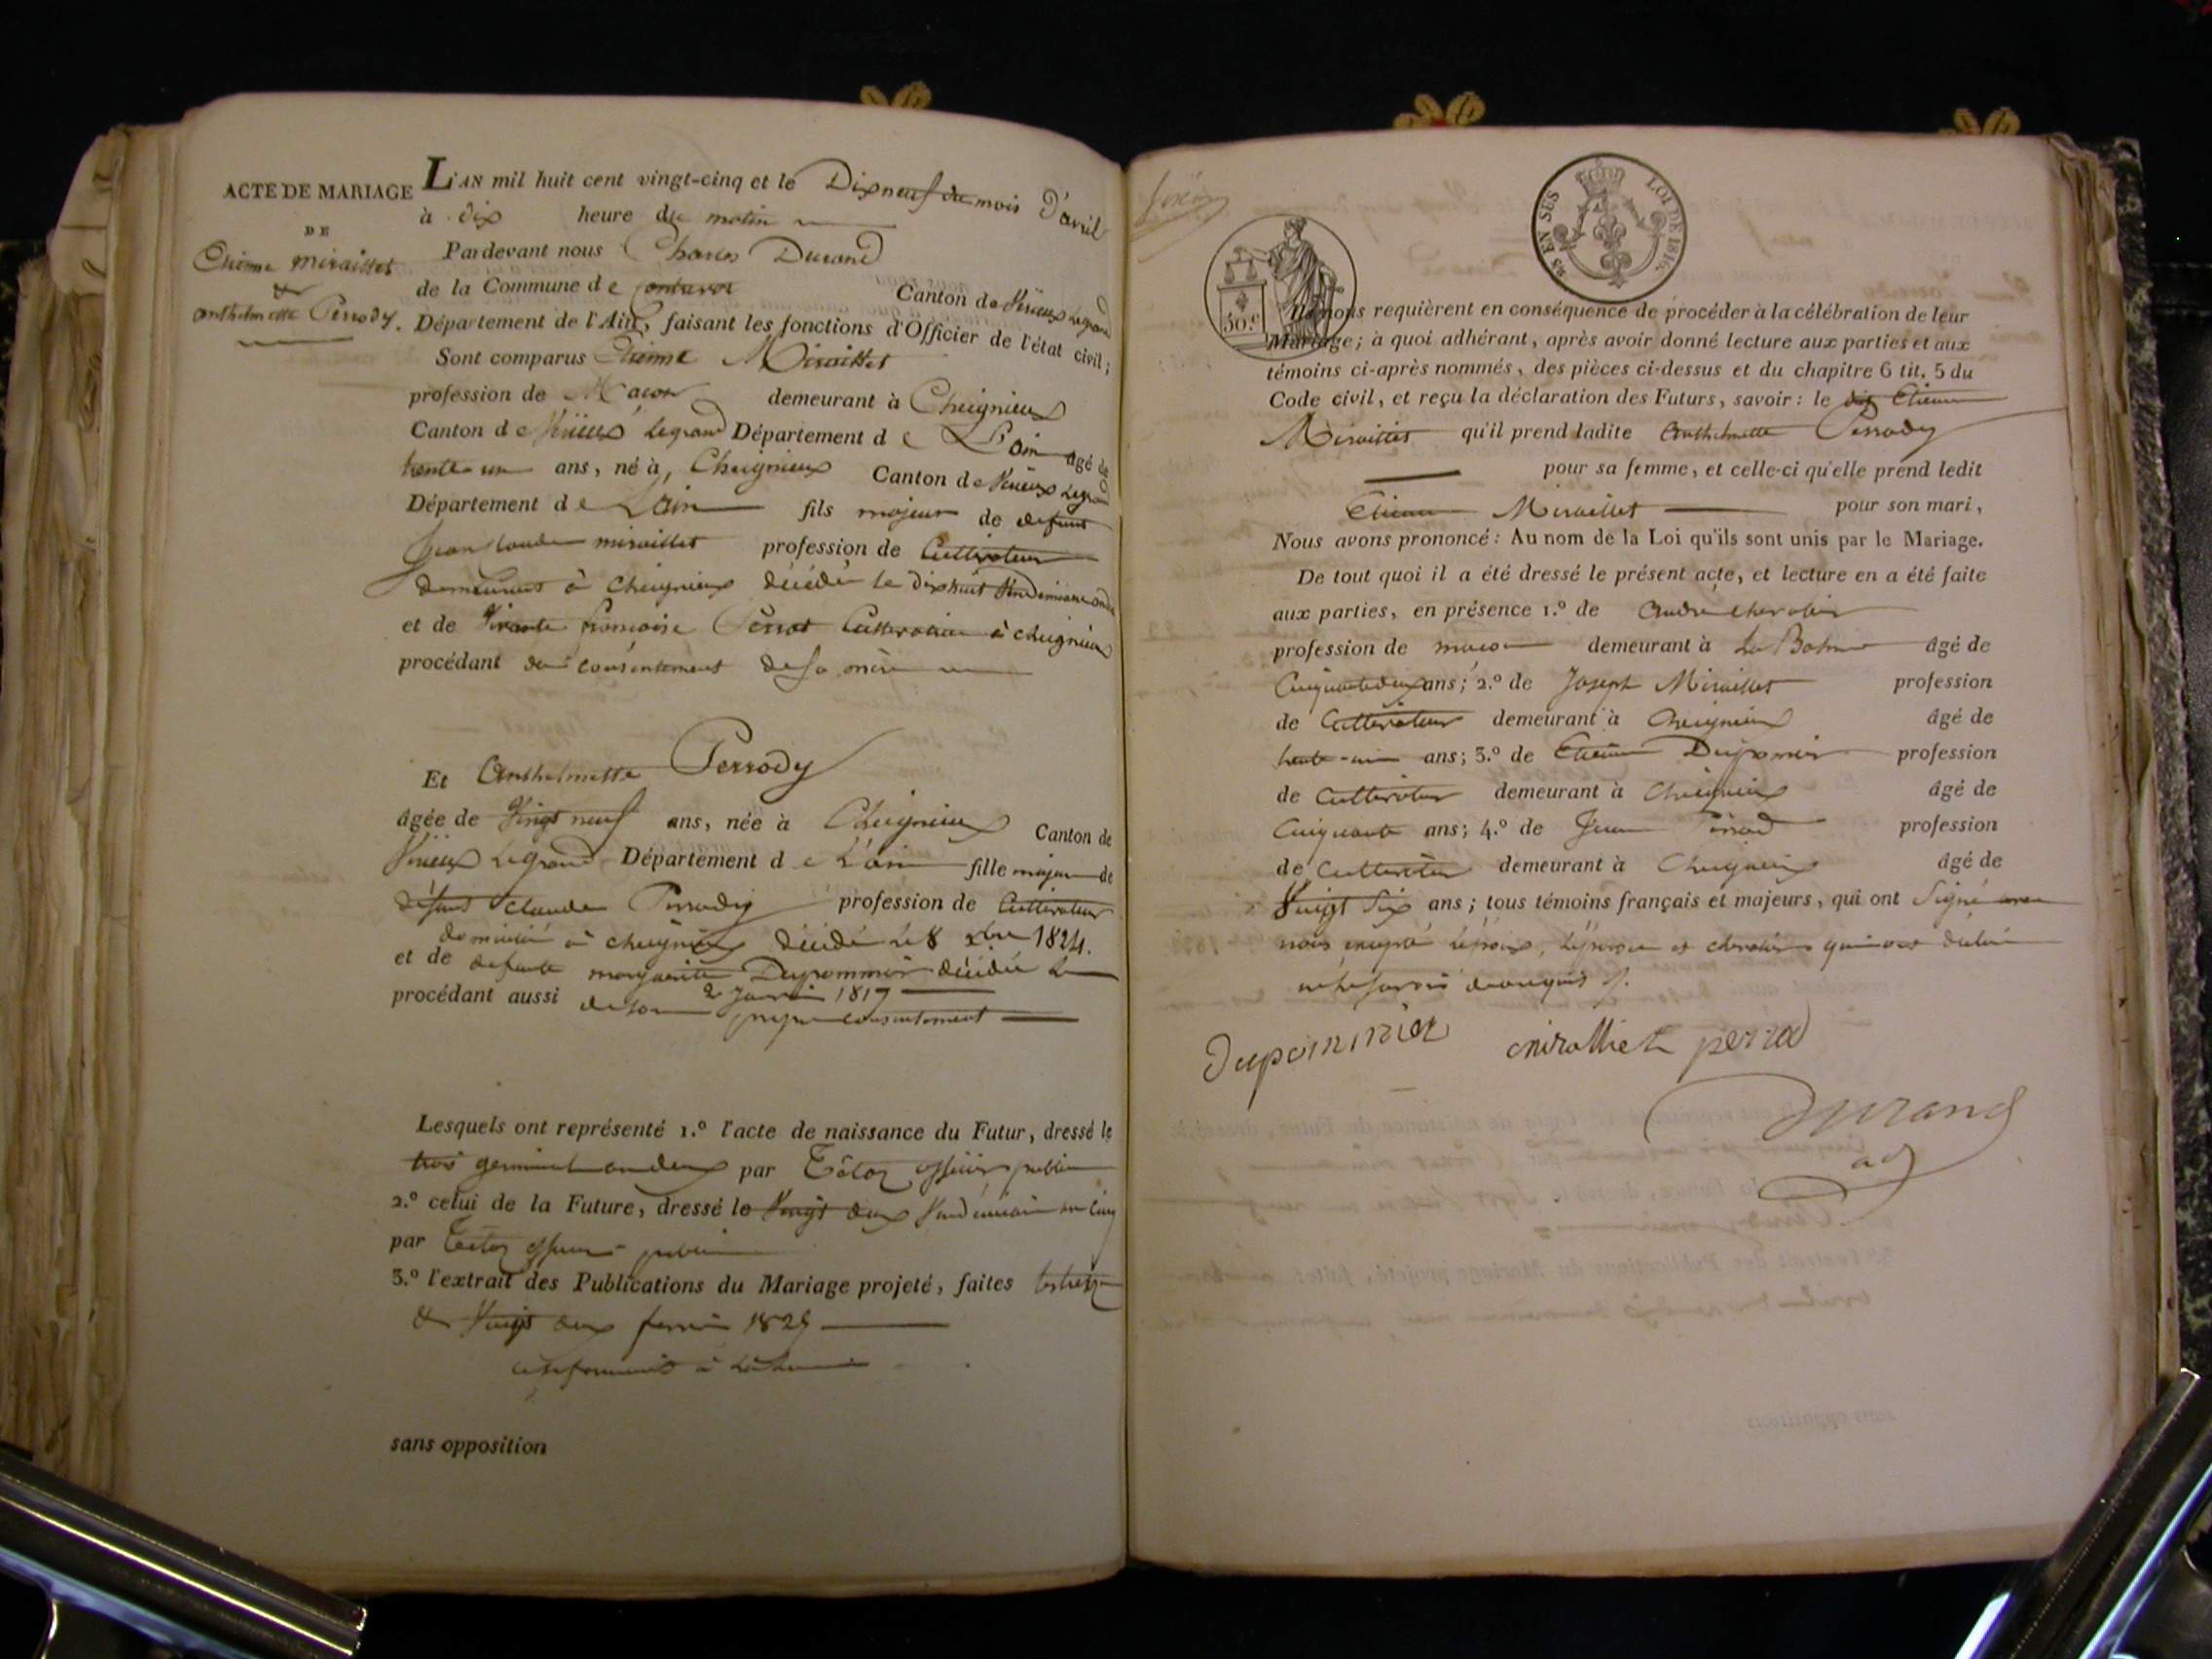 ACTE DE MARIAGE
DE
Etienne Miraillet
&
Anthelmette Perrody.
L'AN mil huit cent vingt-cinq et le Dix neuf du mois D'avril
à dix heure du matin
Pardevant nous Charles Durand
de la Commune de Contrevoz Canton de Virieux Legrand
Département de l'Ain, faisant les fonctions d'Officier de l'état civil;
Sont comparus Etienne Miraillet
profession de Maçon demeurant à Cheignieux
Canton de Virieux Legrand Département de L'ain âgé de
trente un ans, né à, Cheignieux Canton de Virieux Legrand
Département de L'ain fils majeur de defunt
Jean Claude miraillet profession de Cultivateur
demeurant à Cheignieux décédé le dix huit Vendemiaire
et de Vivante francoise Perrot Cultivatrice à cheignieux
procédant du consentement de sa mère
Et Anthelmette Perrody
âgée de Vingt neuf ans, née à Cheignieux Canton de
Virieux Legrand Département de L'ain fille majeure de
défunt Claude Perrody profession de Cultivateur
domicilié à cheignieux décédé le 8 xbre 1824.
et de defunte marguerite Dupommier décédée le
2 Janvier 1817
procédant aussi de son propre consentement
Lesquels ont représenté 1.° l'acte de naissance du Futur, dressé le
trois germinal an deux par Tétoz officier public
2.° celui de la Future, dressé le Vingt deux Vendemiaire an Cinq
par Tétoz officier public
3.° l'extrait des Publications du Mariage projeté, faites les treize
& Vingt deux 1825
conformement à la
sans opposition
30.c
LOI DE 1816.
Ils nous requièrent en conséquence de procéder à la célébration de leur
Mariage; à quoi adhérant, après avoir donné lecture aux parties et aux
témoins ci-après nommés, des pièces ci-dessus et du chapitre 6 tit. 5 du
Code civil, et reçu la déclaration des Futurs, savoir: le dit Etienne
Miraillet qu'il prend ladite Anthelmette Perrody
pour sa femme, et celle-ci qu'elle prend ledit
Etienne Miraillet pour son mari,
Nous avons prononcé: Au nom de la Loi qu'ils sont unis par le Mariage.
De tout quoi il a été dressé le présent acte, et lecture en a été faite
aux parties, en présence 1.° de André
profession de maçon demeurant à La Balme âgé de
Cinquante deux ans; 2.° de Joseph Miraillet profession
de Cultivateur demeurant à Cheignieux âgé de
trente un ans; 3.° de Etienne Dupomier profession
de Cultivateur demeurant à Cheignieux âgé de
Cinquante ans; 4.° de Jean Perrod profession
de Cultivateur demeurant à Cheignieux âgé de
Vingt Six ans; tous témoins français et majeurs, qui ont Signé avec
nous excepté L'époux, L'épouse et qui ont déclaré
ne le savoir de ce requis
Dupommier miralliet perrod
Durand
adj